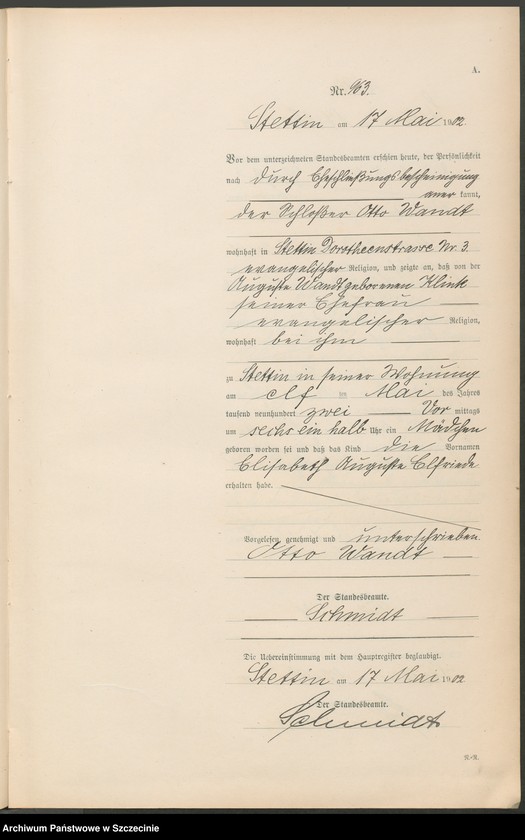 A.
Nr. 963.
Stettin am 17 Mai 1902
Vor dem unterzeichneten Standesbeamten erschien heute, der Persönlichkeit
nach durch Eheschließungsbescheinigung
aner kannt,
der Schloßer Otto Wandt
wohnhaft in Stettin Dorotheenstrasse Nr. 3.
evangelischer Religion, und zeigte an, daß von der
Auguste Wandt geborenen Klink
seiner Ehefrau
evangelischer Religion,
wohnhaft bei ihm
zu Stettin in seiner Wohnung
am elf ten Mai des Jahres
tausend neunhundert zwei Vor mittags
um sechs ein halb Uhr ein Mädchen
geboren worden sei und daß das Kind die Vornamen
Elisabeth Auguste Elfriede
erhalten habe.
Vorgelesen, genehmigt und unterschrieben
Otto Wandt
Der Standesbeamte.
Schmidt
Die Uebereinstimmung mit dem Hauptregister beglaubigt.
Stettin am 17 Mai 1902
Der Standesbeamte.
Schmidt
N.-R.
Archiwum Państwowe w Szczecinie